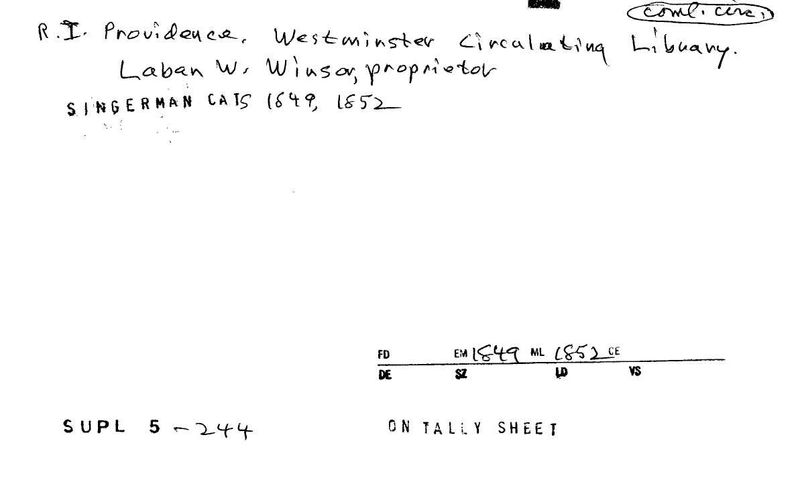 coml. circ.
R.I. Providence. Westminster Circulating Library.
Laban W. Winsor, proprietor
SINGERMAN CATS 1849, 1852
FD EM 1849 ML 1852 CE
DE SZ LD VS
SUPL 5 - 244 ON TALLY SHEET